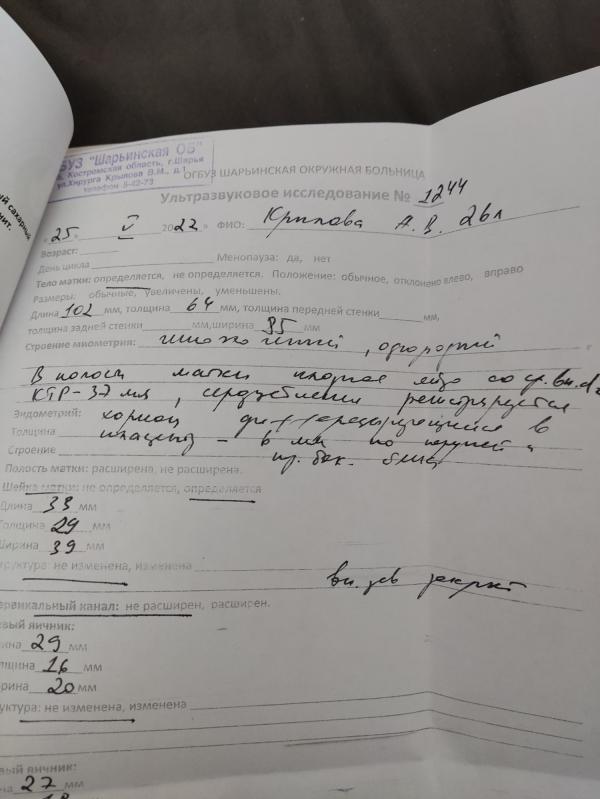 БУЗ "Шарьинская ОБ"
Костромская область, г.Шарья
ул.Хирурга Крылова В.М., д.1
телефон 5-42-73
ый сахарный
ОГБУЗ ШАРЬИНСКАЯ ОКРУЖНАЯ БОЛЬНИЦА
Ультразвуковое исследование № 1244
«25» V 2022» ФИО: Крылова А. В. 26л
Возраст:
День цикла Менопауза: да, нет
Тело матки: определяется, не определяется. Положение: обычное, отклонено влево, вправо
Размеры: обычные, увеличены, уменьшены.
Длина 102 мм, толщина 64 мм, толщина передней стенки мм,
толщина задней стенки мм, ширина 95 мм
Строение миометрия: , однородный
В полости матки плодное яйцо со ср. вн. d
КТР-37 мм, сердцебиение регистрируется
Эндометрий: хорион дифференцирующийся в
Толщина плаценту – 6 мм по передней и
Строение пр. бок.
Полость матки: расширена, не расширена.
Шейка матки: не определяется, определяется
Длина 33 мм
Толщина 29 мм
Ширина 39 мм
руктура: не изменена, изменена
вн. зев закрыт
ервикальный канал: не расширен, расширен.
евый яичник:
ина 29 мм
лщина 16 мм
рина 20 мм
уктура: не изменена, изменена
вый яичник:
на 27 мм